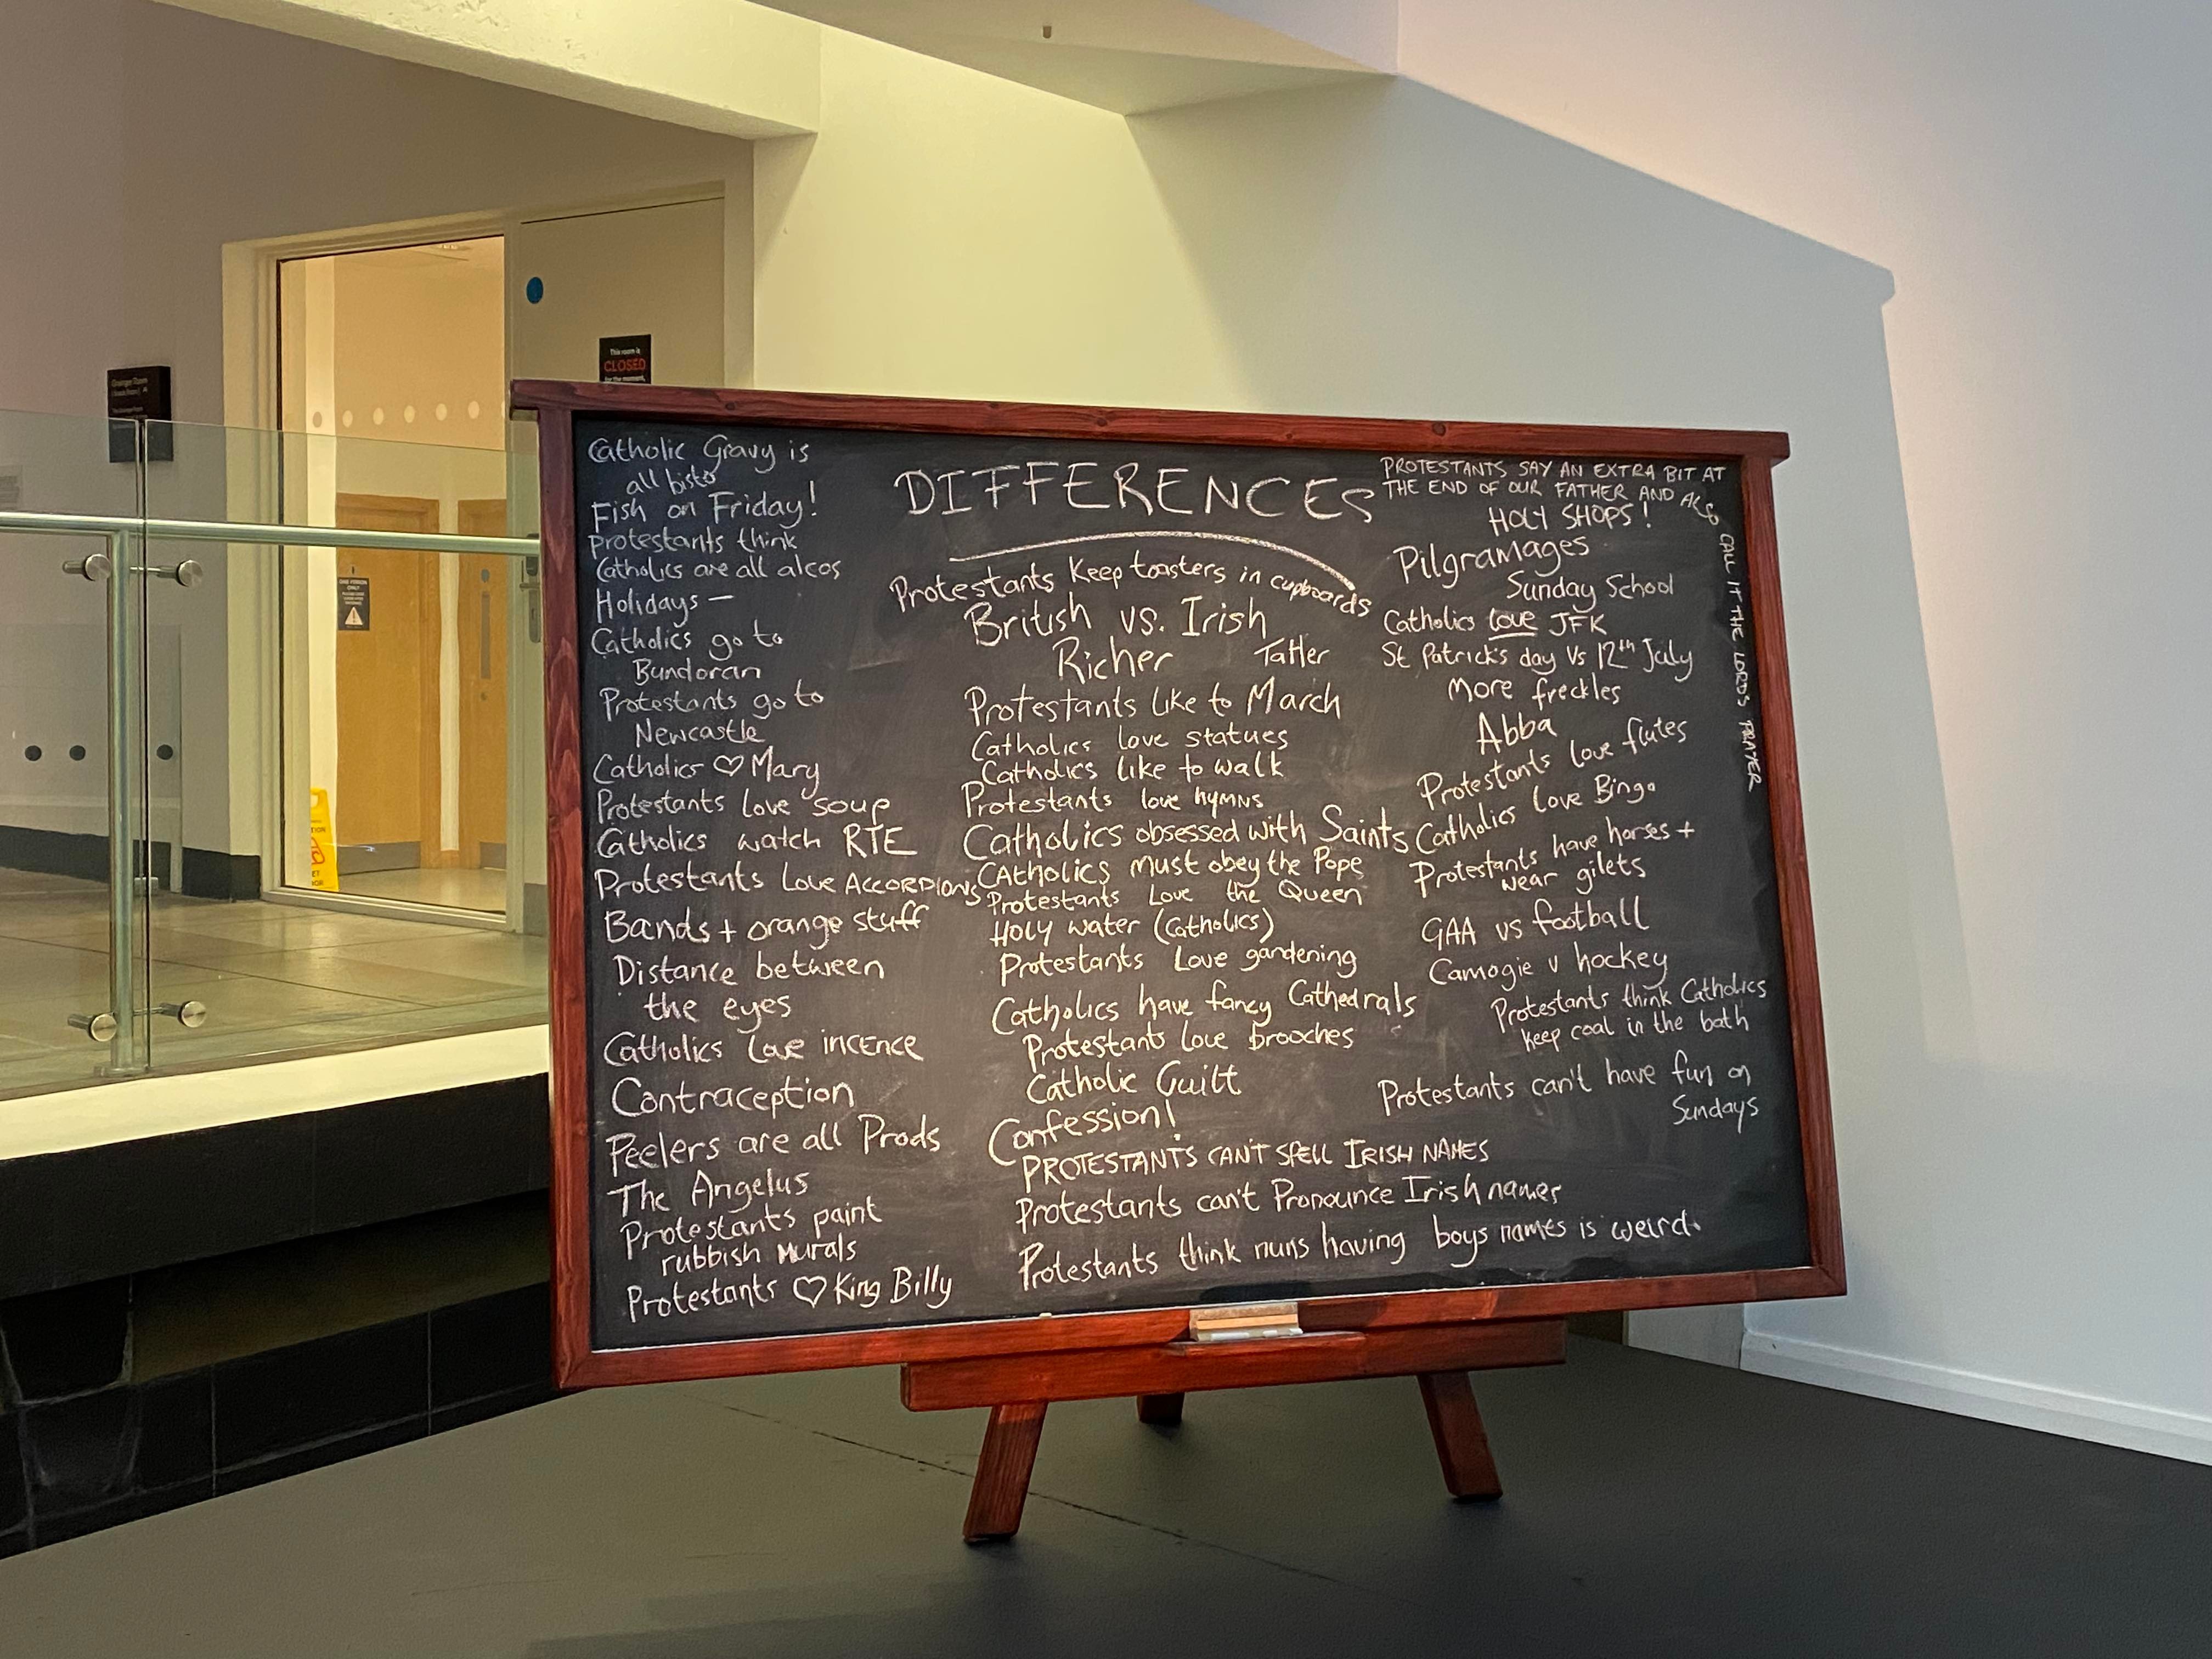 This room is
CLOSED
for the moment,
Catholic Gravy is
all bisto
Fish on Friday!
Protestants think
Catholics are all alcos
Holidays —
Catholics go to
Bundoran
Protestants go to
Newcastle
Catholics ♡ Mary
Protestants love soup
Catholics watch RTE
Protestants Love ACCORDIONS
Bands + orange stuff
Distance between
the eyes
Catholics Love incence
Contraception
Peelers are all Prods
The Angelus
Protestants paint
rubbish murals
Protestants ♡ King Billy
DIFFERENCES
Protestants Keep toasters in cupboards
British vs. Irish
Richer Taller
Protestants like to March
Catholics love statues
Catholics like to walk
Protestants love hymns
Catholics obsessed with Saints
CAtholics must obey the Pope
Protestants Love the Queen
HOLY water (Catholics)
Protestants Love gardening
Catholics have fancy Cathedrals
Protestants love brooches
Catholic Guilt
Confession!
PROTESTANTS CAN'T SPELL IRISH NAMES
Protestants can't Pronounce Irish names
Protestants think nuns having boys names is weird.
PROTESTANTS SAY AN EXTRA BIT AT
THE END OF OUR FATHER AND ALSO
CALL IT THE LORDS PRAYER
HOLY SHOPS!
Pilgramages
Sunday School
Catholics love JFK
St Patrick's day Vs 12th July
More freckles
Abba
Protestants love flutes
Catholics Love Bingo
Protestants have horses +
wear gilets
GAA vs football
Camogie v hockey
Protestants think Catholics
keep coal in the bath
Protestants can't have fun on
Sundays